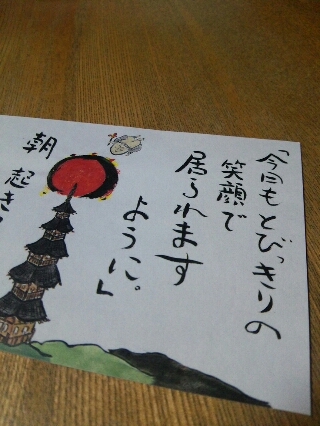 「今日もとびっきりの
笑顔で
居られます
ように。」
朝
起き